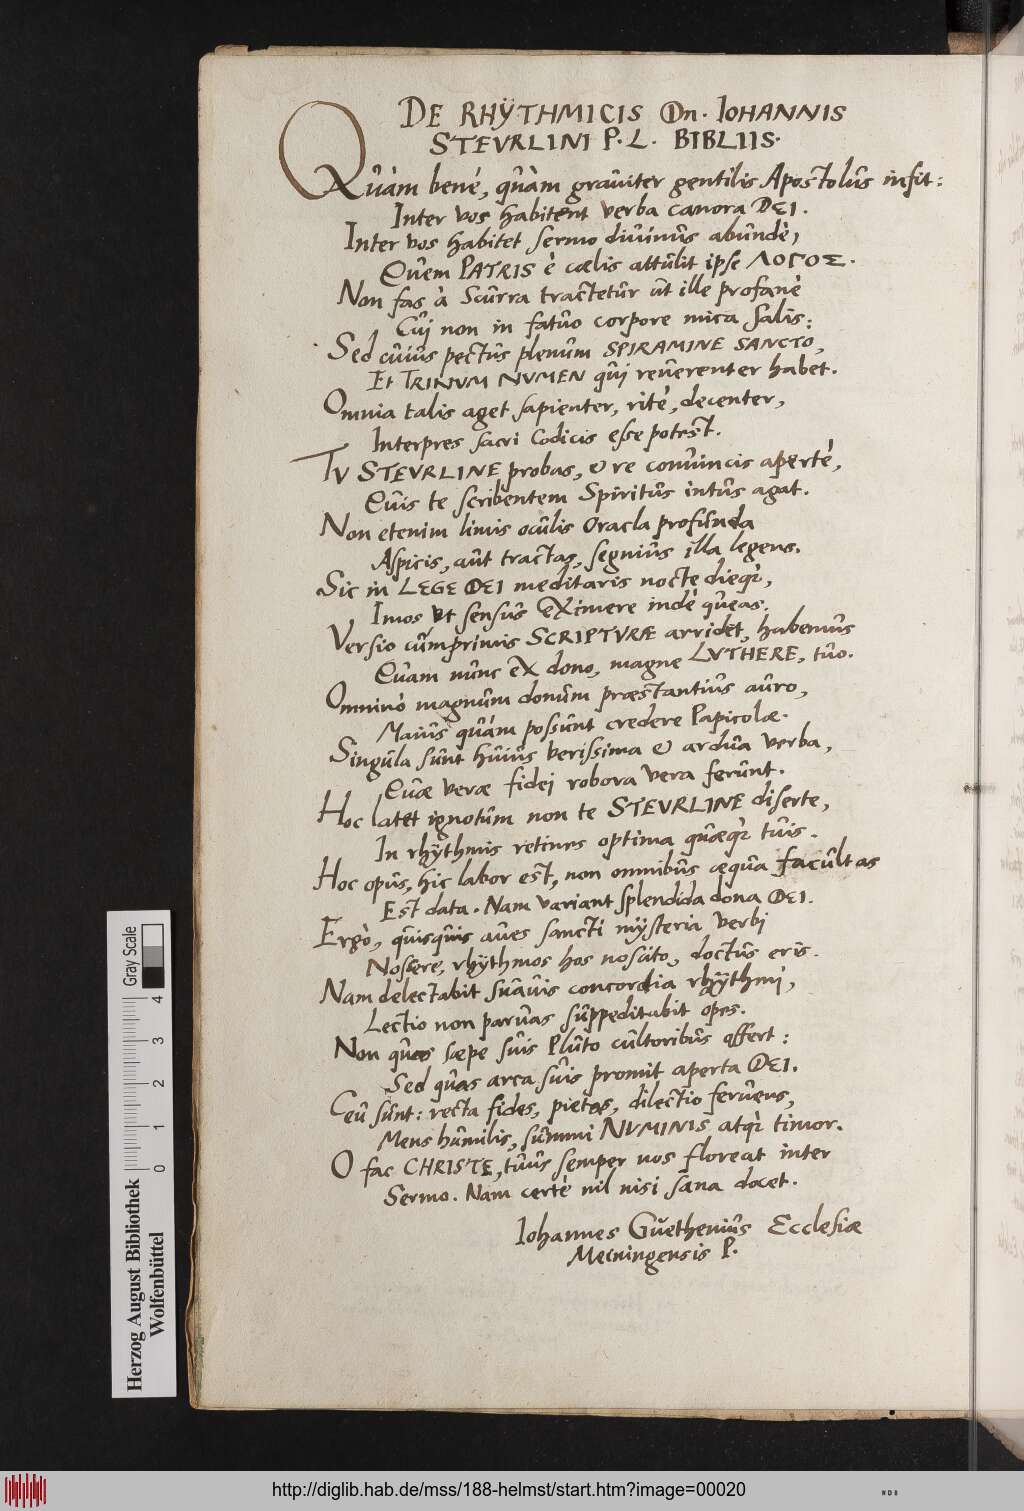 DE RHŸTHMICIS Dn. IOHANNIS
STEVRLINI P. L. BIBLIIS.
Quàm benè, quàm grauiter gentilis Apostolus infit:
Inter vos habitent verba canora DEI.
Inter vos habitet sermo diuinus abundè,
Quem PATRIS è cælis attulit ipse ΛΟΓΟΣ.
Non fas à Scurra tractetur ut ille profanè
Cui non in fatuo corpore mica salis:
Sed cuius pectus plenum SPIRAMINE SANCTO,
Et TRINUM NUMEN qui reuerenter habet.
Omnia talis aget sapienter, ritè, decenter,
Interpres sacri Codicis esse potest.
TV STEVRLINE probas, & re conuincis apertè,
Quis te scribentem Spiritus intus agat.
Non etenim limis oculis Oracla profunda
Aspicis, aut tractas, segnius illa legens.
Sic in LEGE DEI meditaris nocte dieq́;,
Imos vt sensus eximere indè queas.
Versio cumprimis SCRIPTVRÆ arridet, habemus
Quam nunc ex dono, magne LVTHERE, tuo.
Omninò magnum donum præstantius auro,
Maius quàm possunt credere Papicolæ.
Singula sunt huius verissima & ardua verba,
Quæ veræ fidei robora vera ferunt.
Hoc latet ignotum non te STEVRLINE diserte,
In rhÿthmis retines optima quæq́; tuis.
Hoc opus, hic labor est, non omnibus æqua facultas
Est data. Nam variant splendida dona DEI.
Ergò, quisquis aues sancti mÿsteria verbi
Noscere, rhÿthmos hos noscito, doctus eris.
Nam delectabit suauis concordia rhÿthmi,
Lectio non paruas suppeditabit opes.
Non quas sæpe suis Pluto cultoribus offert:
Sed quas arca suis promit aperta DEI.
Ceu sunt: recta fides, pietas, dilectio feruens,
Mens humilis, summi NVMINIS atq́; timor.
O fac CHRISTE, tuus semper nos floreat inter
Sermo. Nam certè nil nisi sana docet.
Iohannes Güethenius Ecclesiæ
Meiningensis P.
Gray Scale
4
3
2
1
0
Herzog August Bibliothek
Wolfenbüttel
http://diglib.hab.de/mss/188-helmst/start.htm?image=00020